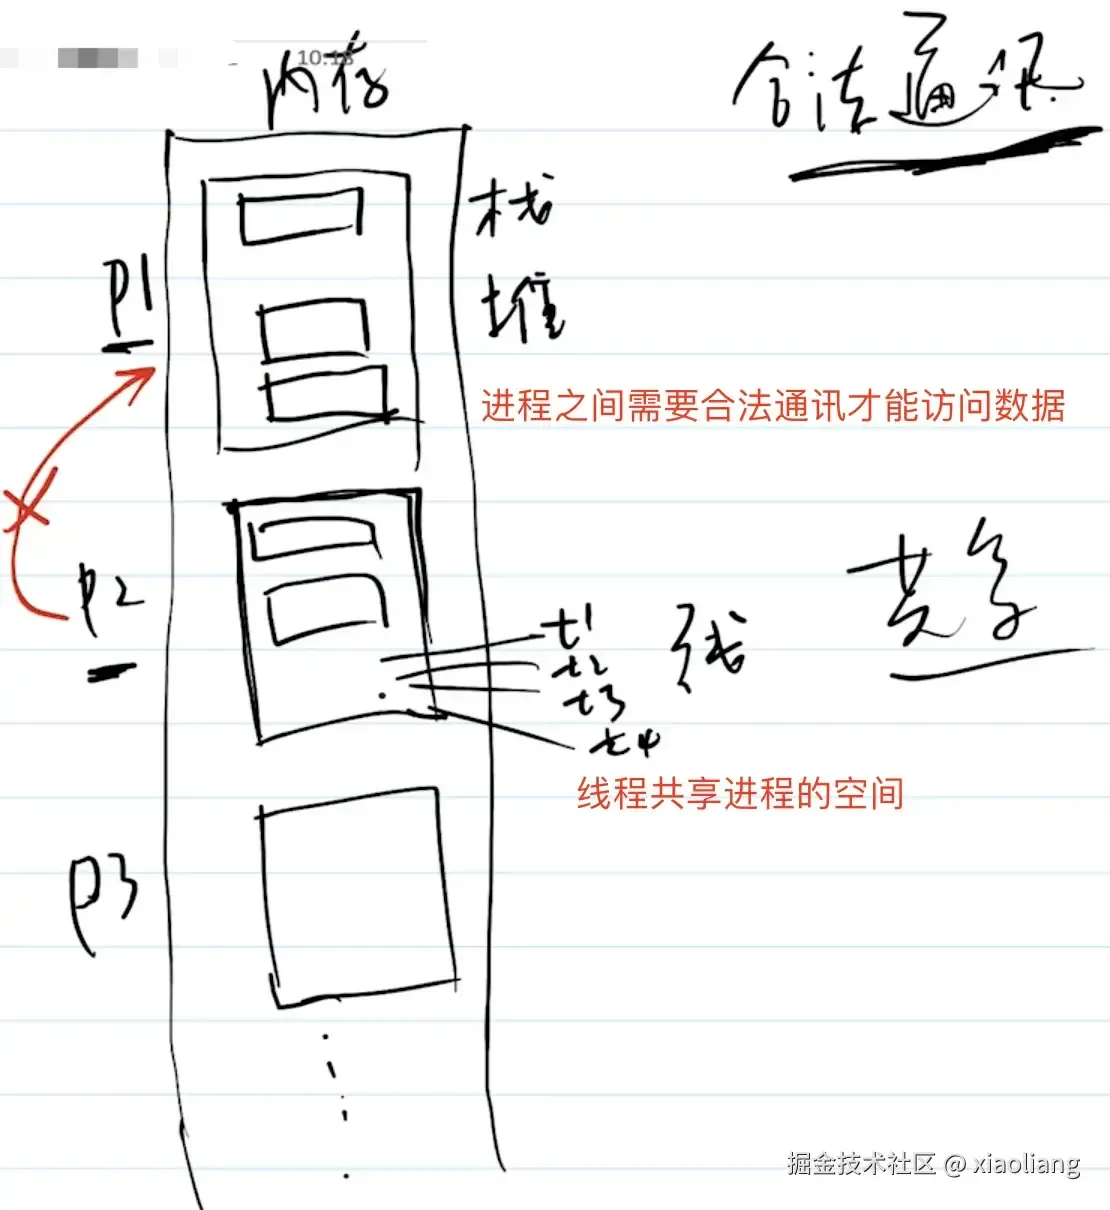 10:18
内存
合法通讯
栈
p1
堆
进程之间需要合法通讯才能访问数据
p2
t1
t2
t3
t4
线
共享
线程共享进程的空间
p3
掘金技术社区 @ xiaoliang